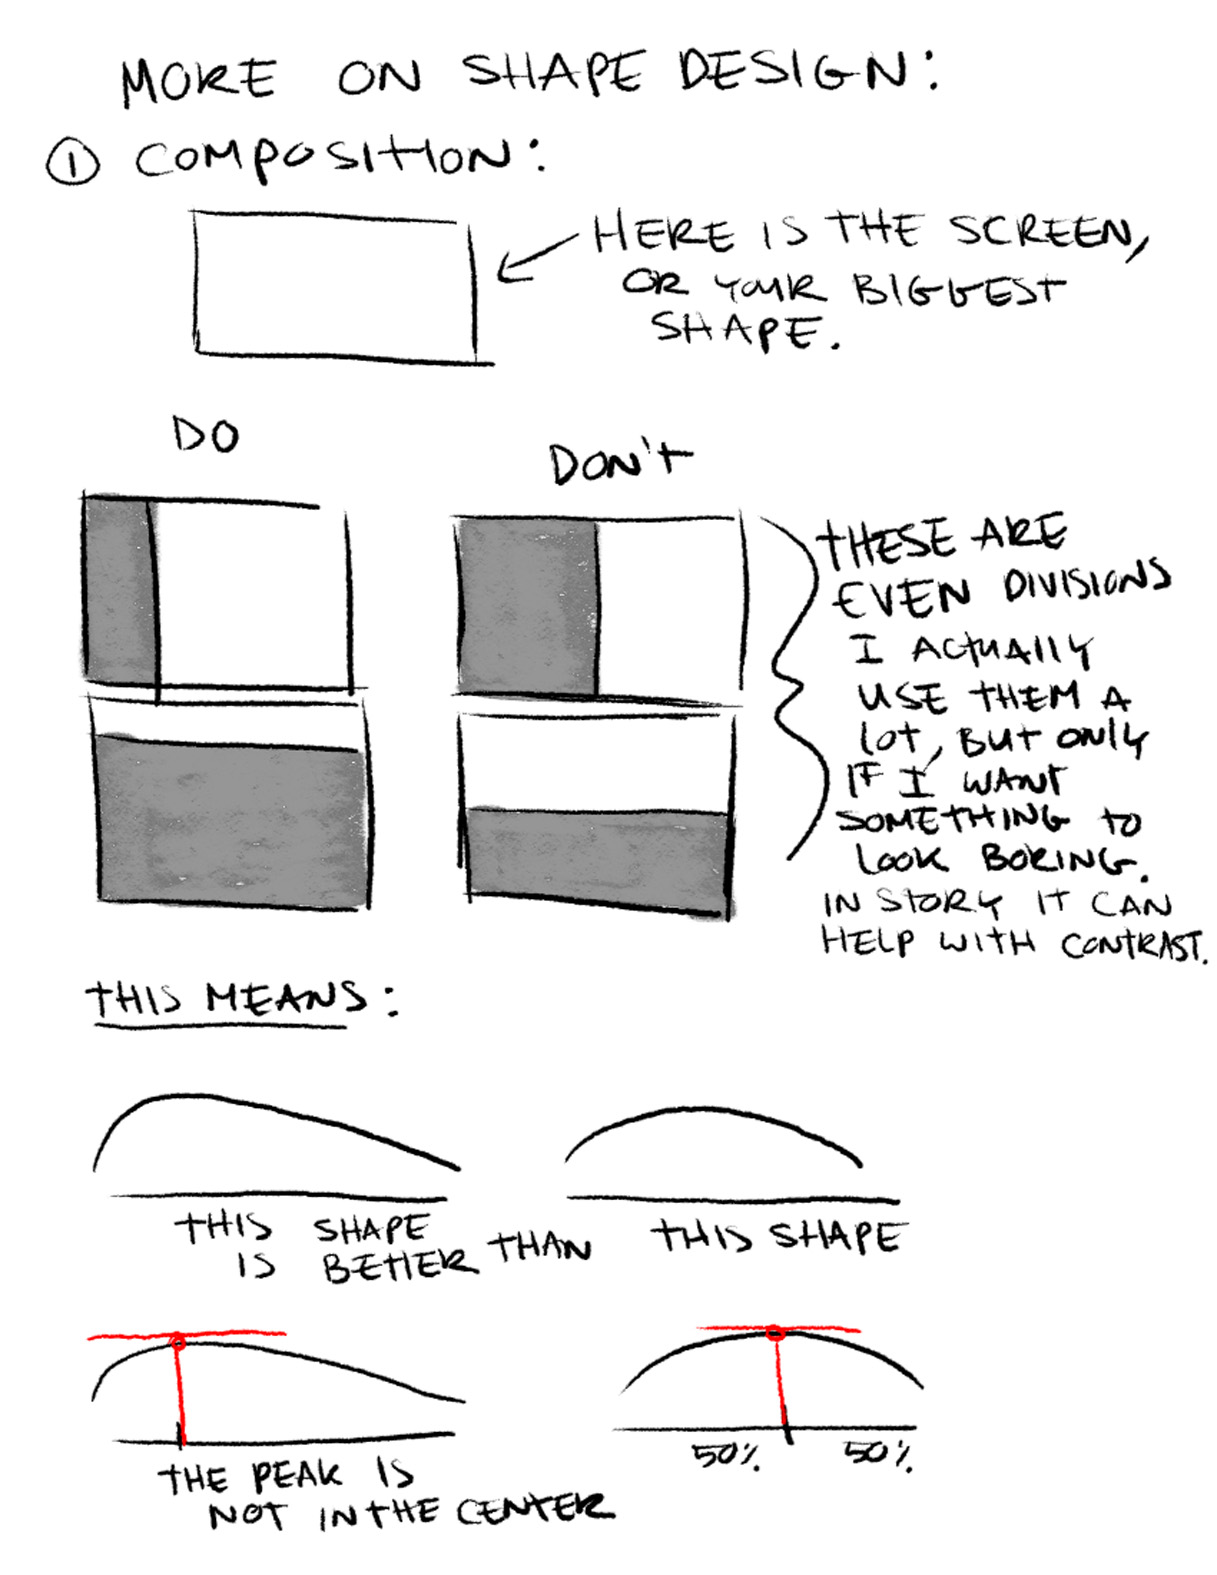 MORE ON SHAPE DESIGN:
① COMPOSITION:
HERE IS THE SCREEN,
OR YOUR BIGGEST
SHAPE.
DO
DON'T
THESE ARE
EVEN DIVISIONS
I ACTUALLY
USE THEM A
LOT, BUT ONLY
IF I WANT
SOMETHING TO
LOOK BORING.
IN STORY IT CAN
HELP WITH CONTRAST.
THIS MEANS:
THIS SHAPE
IS BETTER THAN
THIS SHAPE
THE PEAK IS
NOT IN THE CENTER
50% 50%